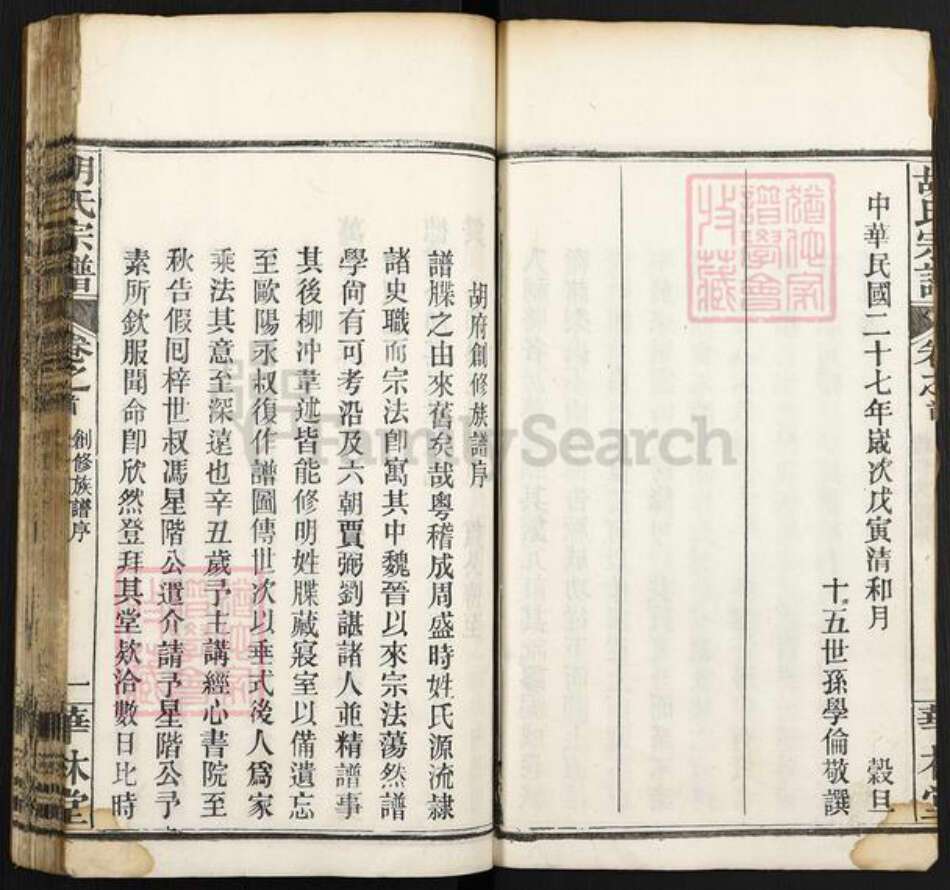 胡氏宗譜
卷之首
華林堂
中華民國二十七年歲次戊寅清和月
穀旦
十五世孫學倫敬譔
胡府創修族譜序
譜牒之由來舊矣哉粵稽成周盛時姓氏源流隷
諸史職而宗法卽寓其中魏晉以來宗法蕩然譜
學尙有可考沿及六朝賈弼劉諶諸人並精譜事
其後柳冲韋述皆能修明姓牒藏寢室以備遺忘
至歐陽永叔復作譜圖傳世次以垂式後人爲家
乘法其意至深遠也辛丑歲予主講經心書院至
秋告假囘梓世叔馮星階公遣介請予星階公予
素所欽服聞命卽欣然登拜其堂欵洽數日比時
胡氏宗譜
卷之首
創修族譜序
一
華林堂
猶他家
譜學會
收藏
猶他家
譜學會
收藏
FamilySearch